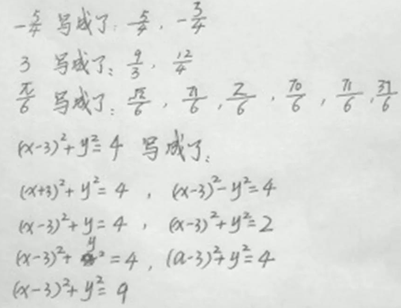 -5/4 写成了: 5/4, -3/4
3 写成了: 9/3, 12/4
π/6 写成了: π/6, π/6, 70/6, π/6, 3π/6
(x-3)²+y²=4 写成了:
(x+3)²+y²=4, (x-3)²-y²=4
(x-3)²+y=4, (x-3)²+y²=2
(x-3)²+y²=4, (a-3)²+y²=4
(x-3)²+y²=9